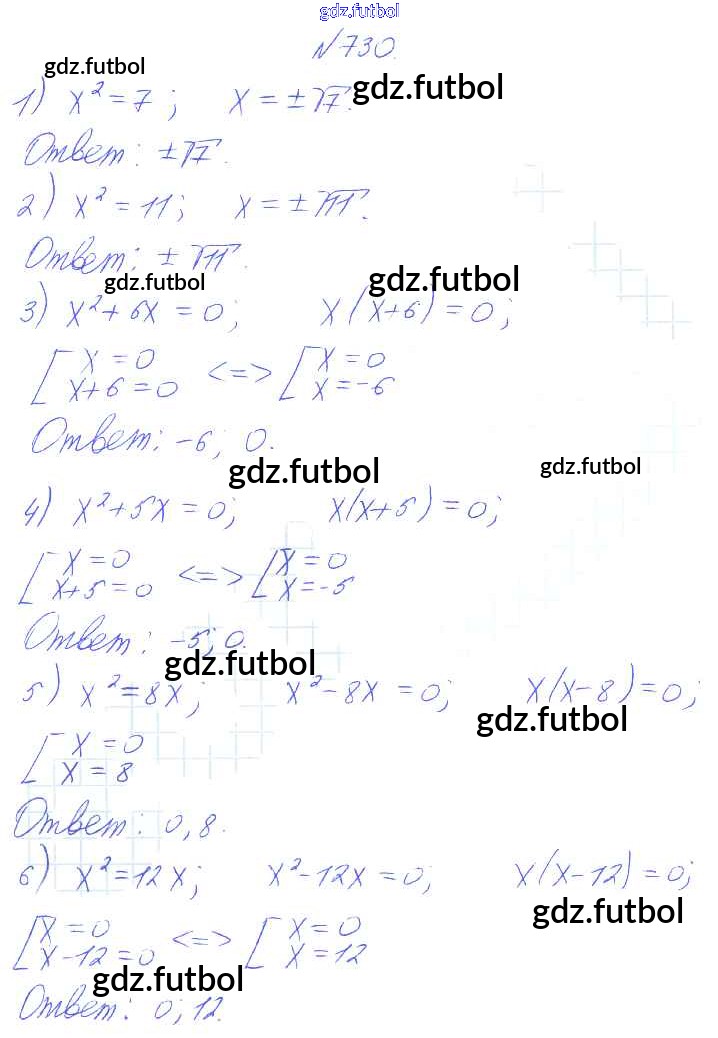 gdz.futbol
№730.
gdz.futbol
1) x² = 7; x = ±√7. gdz.futbol
Ответ: ±√7.
2) x² = 11; x = ±√11.
Ответ: ±√11.
gdz.futbol gdz.futbol
3) x² + 6x = 0; x(x+6) = 0;
[ x = 0 <=> [ x = 0
x+6 = 0 x = -6
Ответ: -6; 0.
gdz.futbol gdz.futbol
4) x² + 5x = 0; x(x+5) = 0;
[ x = 0 <=> [ x = 0
x+5 = 0 x = -5
Ответ: -5; 0.
gdz.futbol
5) x² = 8x; x² - 8x = 0; x(x-8) = 0;
gdz.futbol
[ x = 0
x = 8
Ответ: 0, 8.
6) x² = 12x; x² - 12x = 0; x(x-12) = 0;
gdz.futbol
[ x = 0 <=> [ x = 0
x-12 = 0 x = 12
gdz.futbol
Ответ: 0; 12.